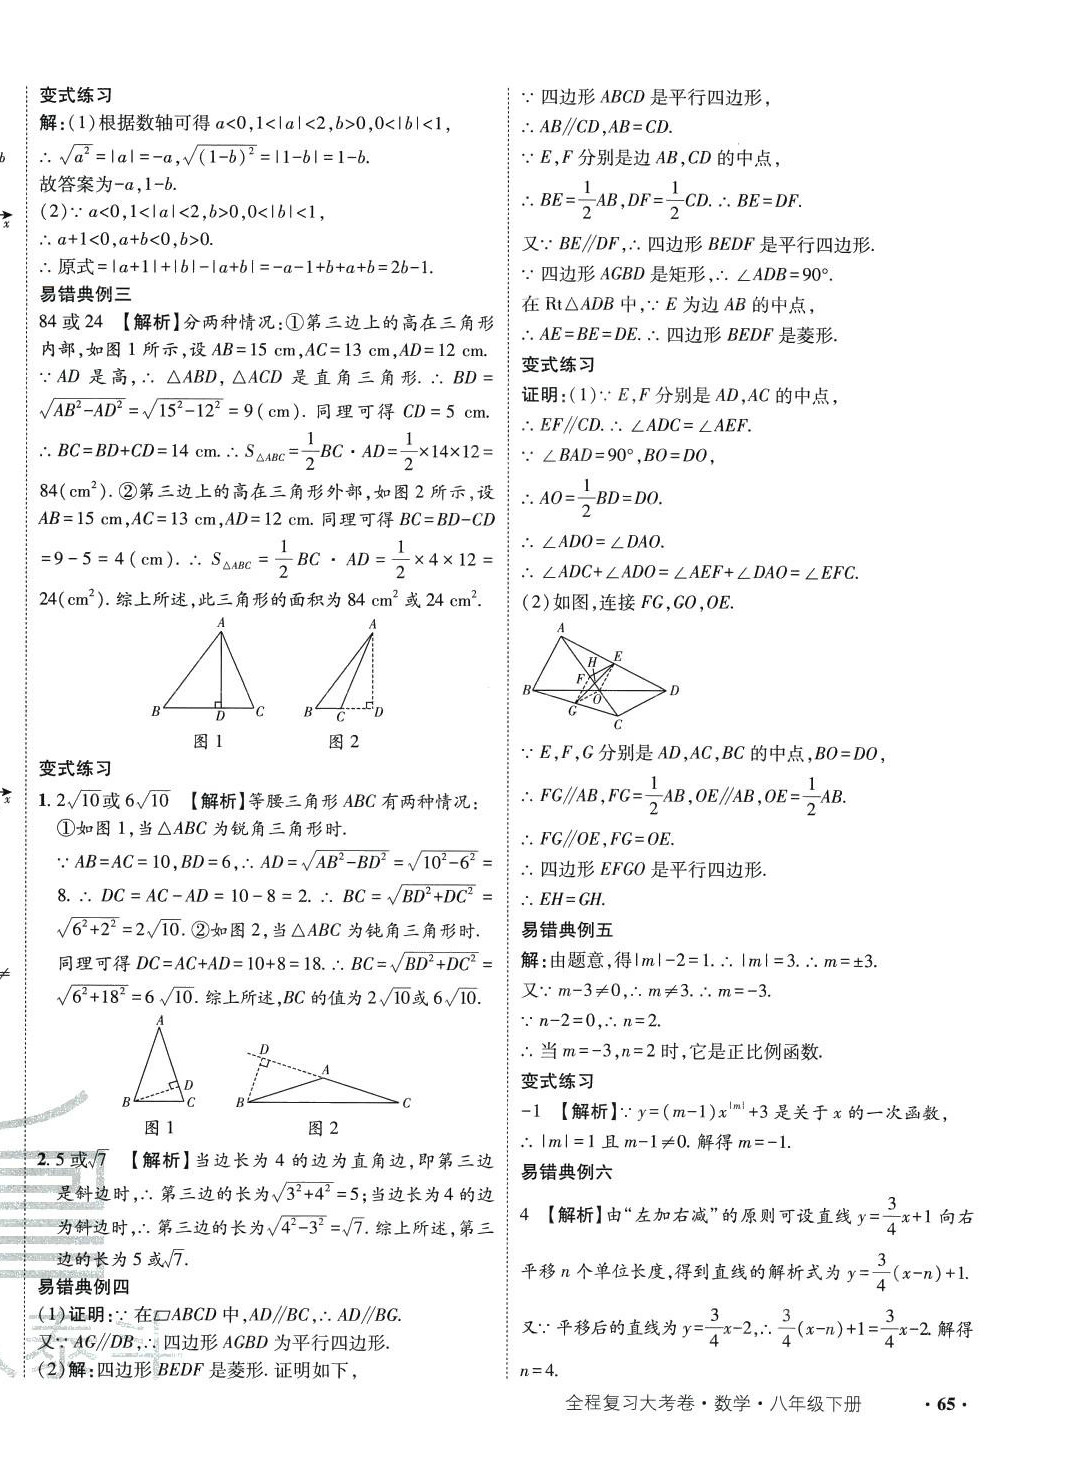 变式练习
解:(1)根据数轴可得 a<0,1<|a|<2,b>0,0<|b|<1,
∴ √a² =|a|=-a,√(1-b)² =|1-b|=1-b.
故答案为-a,1-b.
(2)∵ a<0,1<|a|<2,b>0,0<|b|<1,
∴ a+1<0,a+b<0,b>0.
∴ 原式=|a+1|+|b|-|a+b|=-a-1+b+a+b=2b-1.
易错典例三
84 或 24 【解析】分两种情况:①第三边上的高在三角形
内部,如图 1 所示,设 AB=15 cm,AC=13 cm,AD=12 cm.
∵ AD 是高,∴ △ABD,△ACD 是直角三角形.∴ BD=
√AB²-AD² =√15²-12² =9(cm). 同理可得 CD=5 cm.
∴ BC=BD+CD=14 cm.∴ S△ABC=1/2BC·AD=1/2×14×12=
84(cm²).②第三边上的高在三角形外部,如图 2 所示,设
AB=15 cm,AC=13 cm,AD=12 cm. 同理可得 BC=BD-CD
=9-5=4(cm).∴ S△ABC=1/2BC·AD=1/2×4×12=
24(cm²). 综上所述,此三角形的面积为 84 cm² 或 24 cm².
A
B
D
C
图 1
A
B
C
D
图 2
变式练习
1. 2√10或 6√10 【解析】等腰三角形 ABC 有两种情况:
①如图 1,当△ABC 为锐角三角形时.
∵ AB=AC=10,BD=6,∴ AD=√AB²-BD² =√10²-6² =
8.∴ DC=AC-AD=10-8=2.∴ BC=√BD²+DC² =
√6²+2² =2√10.②如图 2,当△ABC 为钝角三角形时.
同理可得 DC=AC+AD=10+8=18.∴ BC=√BD²+DC² =
√6²+18² =6√10. 综上所述,BC 的值为 2√10或 6√10.
A
D
B
C
图 1
D
A
B
C
图 2
2. 5 或√7 【解析】当边长为 4 的边为直角边,即第三边
是斜边时,∴ 第三边的长为√3²+4² =5;当边长为 4 的边
为斜边时,∴ 第三边的长为√4²-3² =√7. 综上所述,第三
边的长为 5 或√7.
易错典例四
(1)证明:∵ 在▱ABCD 中,AD∥BC,∴ AD∥BG.
又∵ AG∥DB,∴ 四边形 AGBD 为平行四边形.
(2)解:四边形 BEDF 是菱形. 证明如下,
∵ 四边形 ABCD 是平行四边形,
∴ AB∥CD,AB=CD.
∵ E,F 分别是边 AB,CD 的中点,
∴ BE=1/2AB,DF=1/2CD.∴ BE=DF.
又∵ BE∥DF,∴ 四边形 BEDF 是平行四边形.
∵ 四边形 AGBD 是矩形,∴ ∠ADB=90°.
在 Rt△ADB 中,∵ E 为边 AB 的中点,
∴ AE=BE=DE.∴ 四边形 BEDF 是菱形.
变式练习
证明:(1)∵ E,F 分别是 AD,AC 的中点,
∴ EF∥CD.∴ ∠ADC=∠AEF.
∵ ∠BAD=90°,BO=DO,
∴ AO=1/2BD=DO.
∴ ∠ADO=∠DAO.
∴ ∠ADC+∠ADO=∠AEF+∠DAO=∠EFC.
(2)如图,连接 FG,GO,OE.
A
H
E
F
B
O
D
G
C
∵ E,F,G 分别是 AD,AC,BC 的中点,BO=DO,
∴ FG∥AB,FG=1/2AB,OE∥AB,OE=1/2AB.
∴ FG∥OE,FG=OE.
∴ 四边形 EFGO 是平行四边形.
∴ EH=GH.
易错典例五
解:由题意,得|m|-2=1.∴ |m|=3.∴ m=±3.
又∵ m-3≠0,∴ m≠3.∴ m=-3.
∵ n-2=0,∴ n=2.
∴ 当 m=-3,n=2 时,它是正比例函数.
变式练习
-1 【解析】∵ y=(m-1)x^|m|+3 是关于 x 的一次函数,
∴ |m|=1 且 m-1≠0. 解得 m=-1.
易错典例六
4 【解析】由“左加右减”的原则可设直线 y=3/4x+1 向右
平移 n 个单位长度,得到直线的解析式为 y=3/4(x-n)+1.
又∵ 平移后的直线为 y=3/4x-2,∴ 3/4(x-n)+1=3/4x-2. 解得
n=4.
全程复习大考卷·数学·八年级下册 ·65·